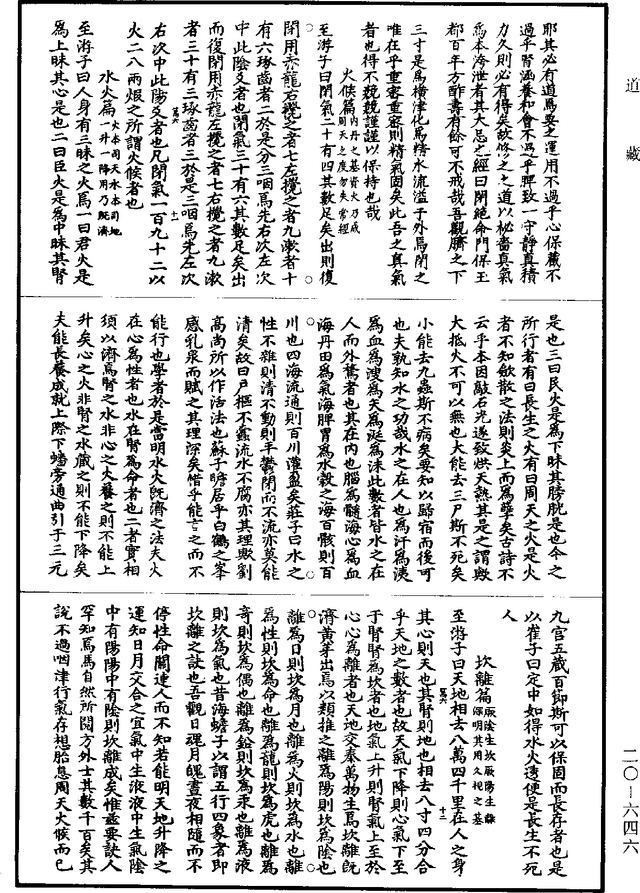 道藏
耶其必有道焉要之運用不過乎心保藏不
過乎腎涵養和會不過乎脾致一守靜真積
力久則必有得矣故脩之之道以秘嗇真氣
爲本洿泄者其大忌之經曰閉絶命門保玉
都百年方酢壽有餘可不戒哉吾觀臍之下
三寸是爲横津化爲精水流溢于外爲閉之
唯在乎重密重密則精氣固矣此吾之真氣
者也得不兢兢謹謹以保持也哉
火候篇 内丹之基資火乃成 周天之度勿失常經
至游子曰閉氣二十有四其數足矣出則復
閉用赤龍右攪之者七左攪之者九漱者十
有六琢齒者二於是分三咽爲先右次左次
中此陰爻者也閉氣三十有六其數足矣出
而復閉用赤龍左攪之者七右攪之者九漱
者三十有三琢齒者三於是三咽焉先左次
右次中此陽爻者也凡閉氣一百九十二以
火二八兩煅之所謂火候者也
水火篇 火本司天水本司地 一升一降用乃既濟
至游子曰人身有三昧之火焉一曰君火是
爲上昧其心是也二曰臣火是爲中昧其腎
是也三曰民火是爲下昧其膀胱是也今之
所行者有曰長生之火有曰周天之火是火
者不知斂散之法則炎上而爲孽矣古詩不
云乎本因敲石光遂致烘天熱其是之謂歟
大抵火不可以無也大能去三尸斯不死矣
小能去九蟲斯不病矣要知以歸宿而後可
也夫孰知水之功哉水之在人也爲汗爲洟
爲血爲溲爲矢爲涎爲沫此數者皆水之在
人而外騖者也其在内也腦爲髓海心爲血
海丹田爲氣海脾胃爲水穀之海百骸則百
川也四海流通則百川灌盈矣莊子曰水之
性不雜則清不動則平鬱閉而不流亦莫能
清矣故曰戶樞不蠹流水不腐亦其理歟劉
高尚所以作活法也蘇子瞻居乎白鶴之峯
感乳泉而賦之其理深矣惜乎能言之而不
能行也學者於是當明水火既濟之法夫火
在心爲性者也水在腎爲命者也二者實相
須以濟焉腎之水非心之火養之則不能上
升矣心之火非腎之水藏之則不能下降矣
夫能長養成就上際下蟠旁通曲引于三元
九宫五藏百節斯可以保固而長存者也是
以崔子曰定中如得水火透便是長生不死
人
坎離篇 厥陰生坎厥陽生離 保明其用久視之基
至游子曰天地相去八萬四千里在人之身
其心則天也其腎則地也相去八寸四分合
乎天地之數者也故天氣下降則心氣下至
于腎腎爲坎者也地氣上升則腎氣上至於
心心爲離者也天地交泰萬物生焉坎離既
濟黄芽出焉以類推之離爲陽則坎爲陰也
離爲日則坎爲月也離爲火則坎爲水也離
爲性則坎爲命也離爲龍則坎爲虎也離爲
奇則坎爲偶也離爲鉛則坎爲汞也離爲液
則坎爲氣也昔海蟾子以謂五行四象者即
坎離之訣也吾觀日魂月魄晝夜相隨而不
停性命關連人而不知若能明天地升降之
運知日月交合之宜氣中生液液中生氣陰
中有陽陽中有陰則坎離成矣惟兹要訣人
罕知焉馬自然所閱方外士其數千百矣其
說不過咽津行氣存想胎息周天火候而已
二〇—六四六